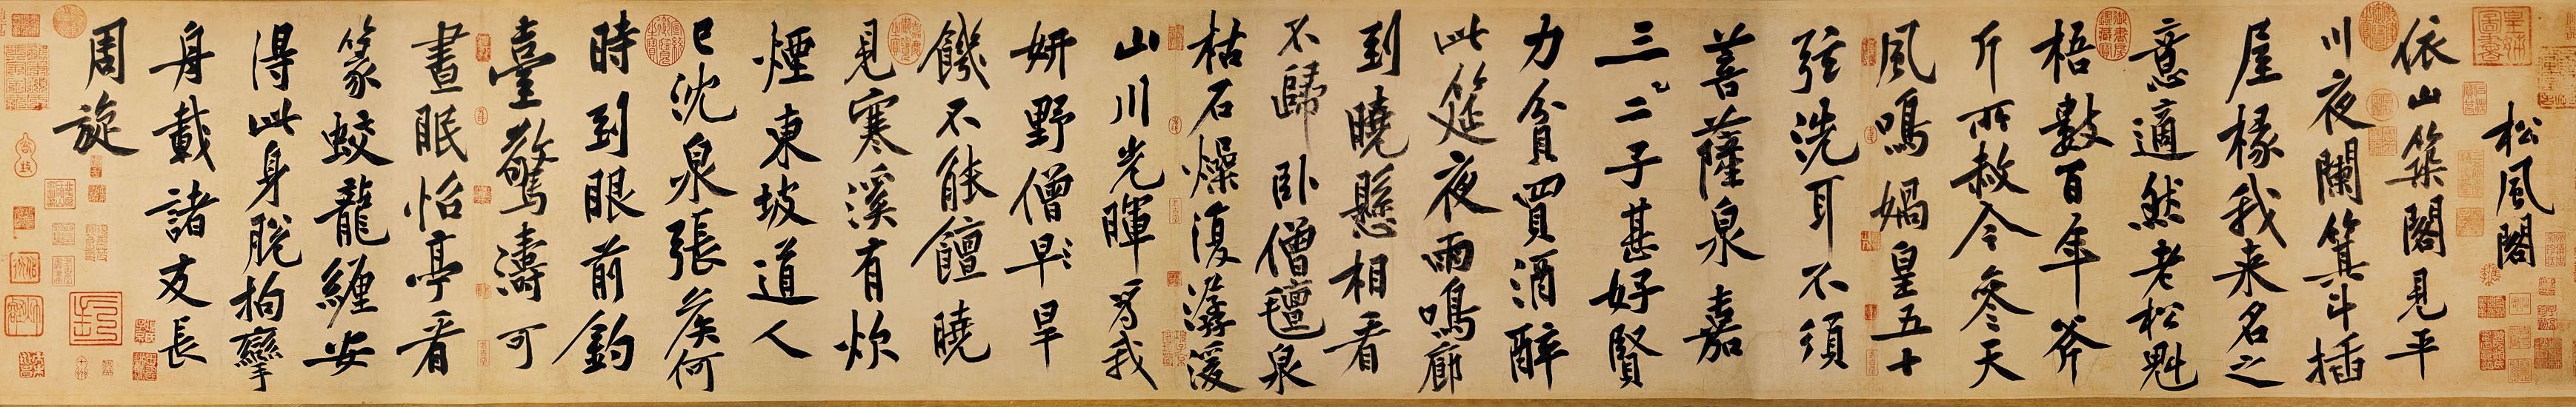 松風閣
依山築閣見平
川夜闌箕斗插
屋椽我来名之
意適然老松魁
梧數百年斧
斤所赦今參天
風鳴媧皇五十
弦洗耳不須
菩薩泉嘉
三二子甚好賢
力貧買酒醉
此筵夜雨鳴廊
到曉懸相看
不歸臥僧氊泉
枯石燥復潺湲
山川光暉為我
妍野僧早旱
饑不能饘曉
見寒溪有炊
煙東坡道人
已沈泉張侯何
時到眼前釣
臺驚濤可
晝眠怡亭看
篆蛟龍纏安
得此身脫拘攣
舟載諸友長
周旋